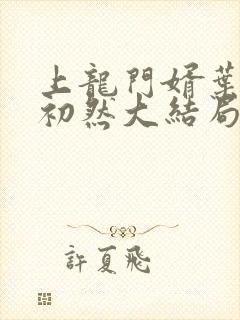 上龍門婿葉
初然大結局
許夏飛